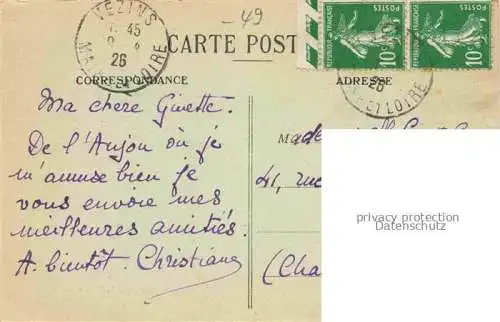 VEZINS
-49
45
26
MAINE ET LOIRE
CARTE POST
REPUBLIQUE FRANÇAISE
POSTES
10c
REPUBLIQUE FRANÇAISE
POSTES
10c
26
ET LOIRE
CORRESPONDANCE
ADRESSE
Ma chere Ginette.
De l'Anjou où je
m'amuse bien je
vous envoie mes
meilleures amitiés.
A bientôt. Christiane
Made
41, rue
(Cha
privacy protection
Datenschutz